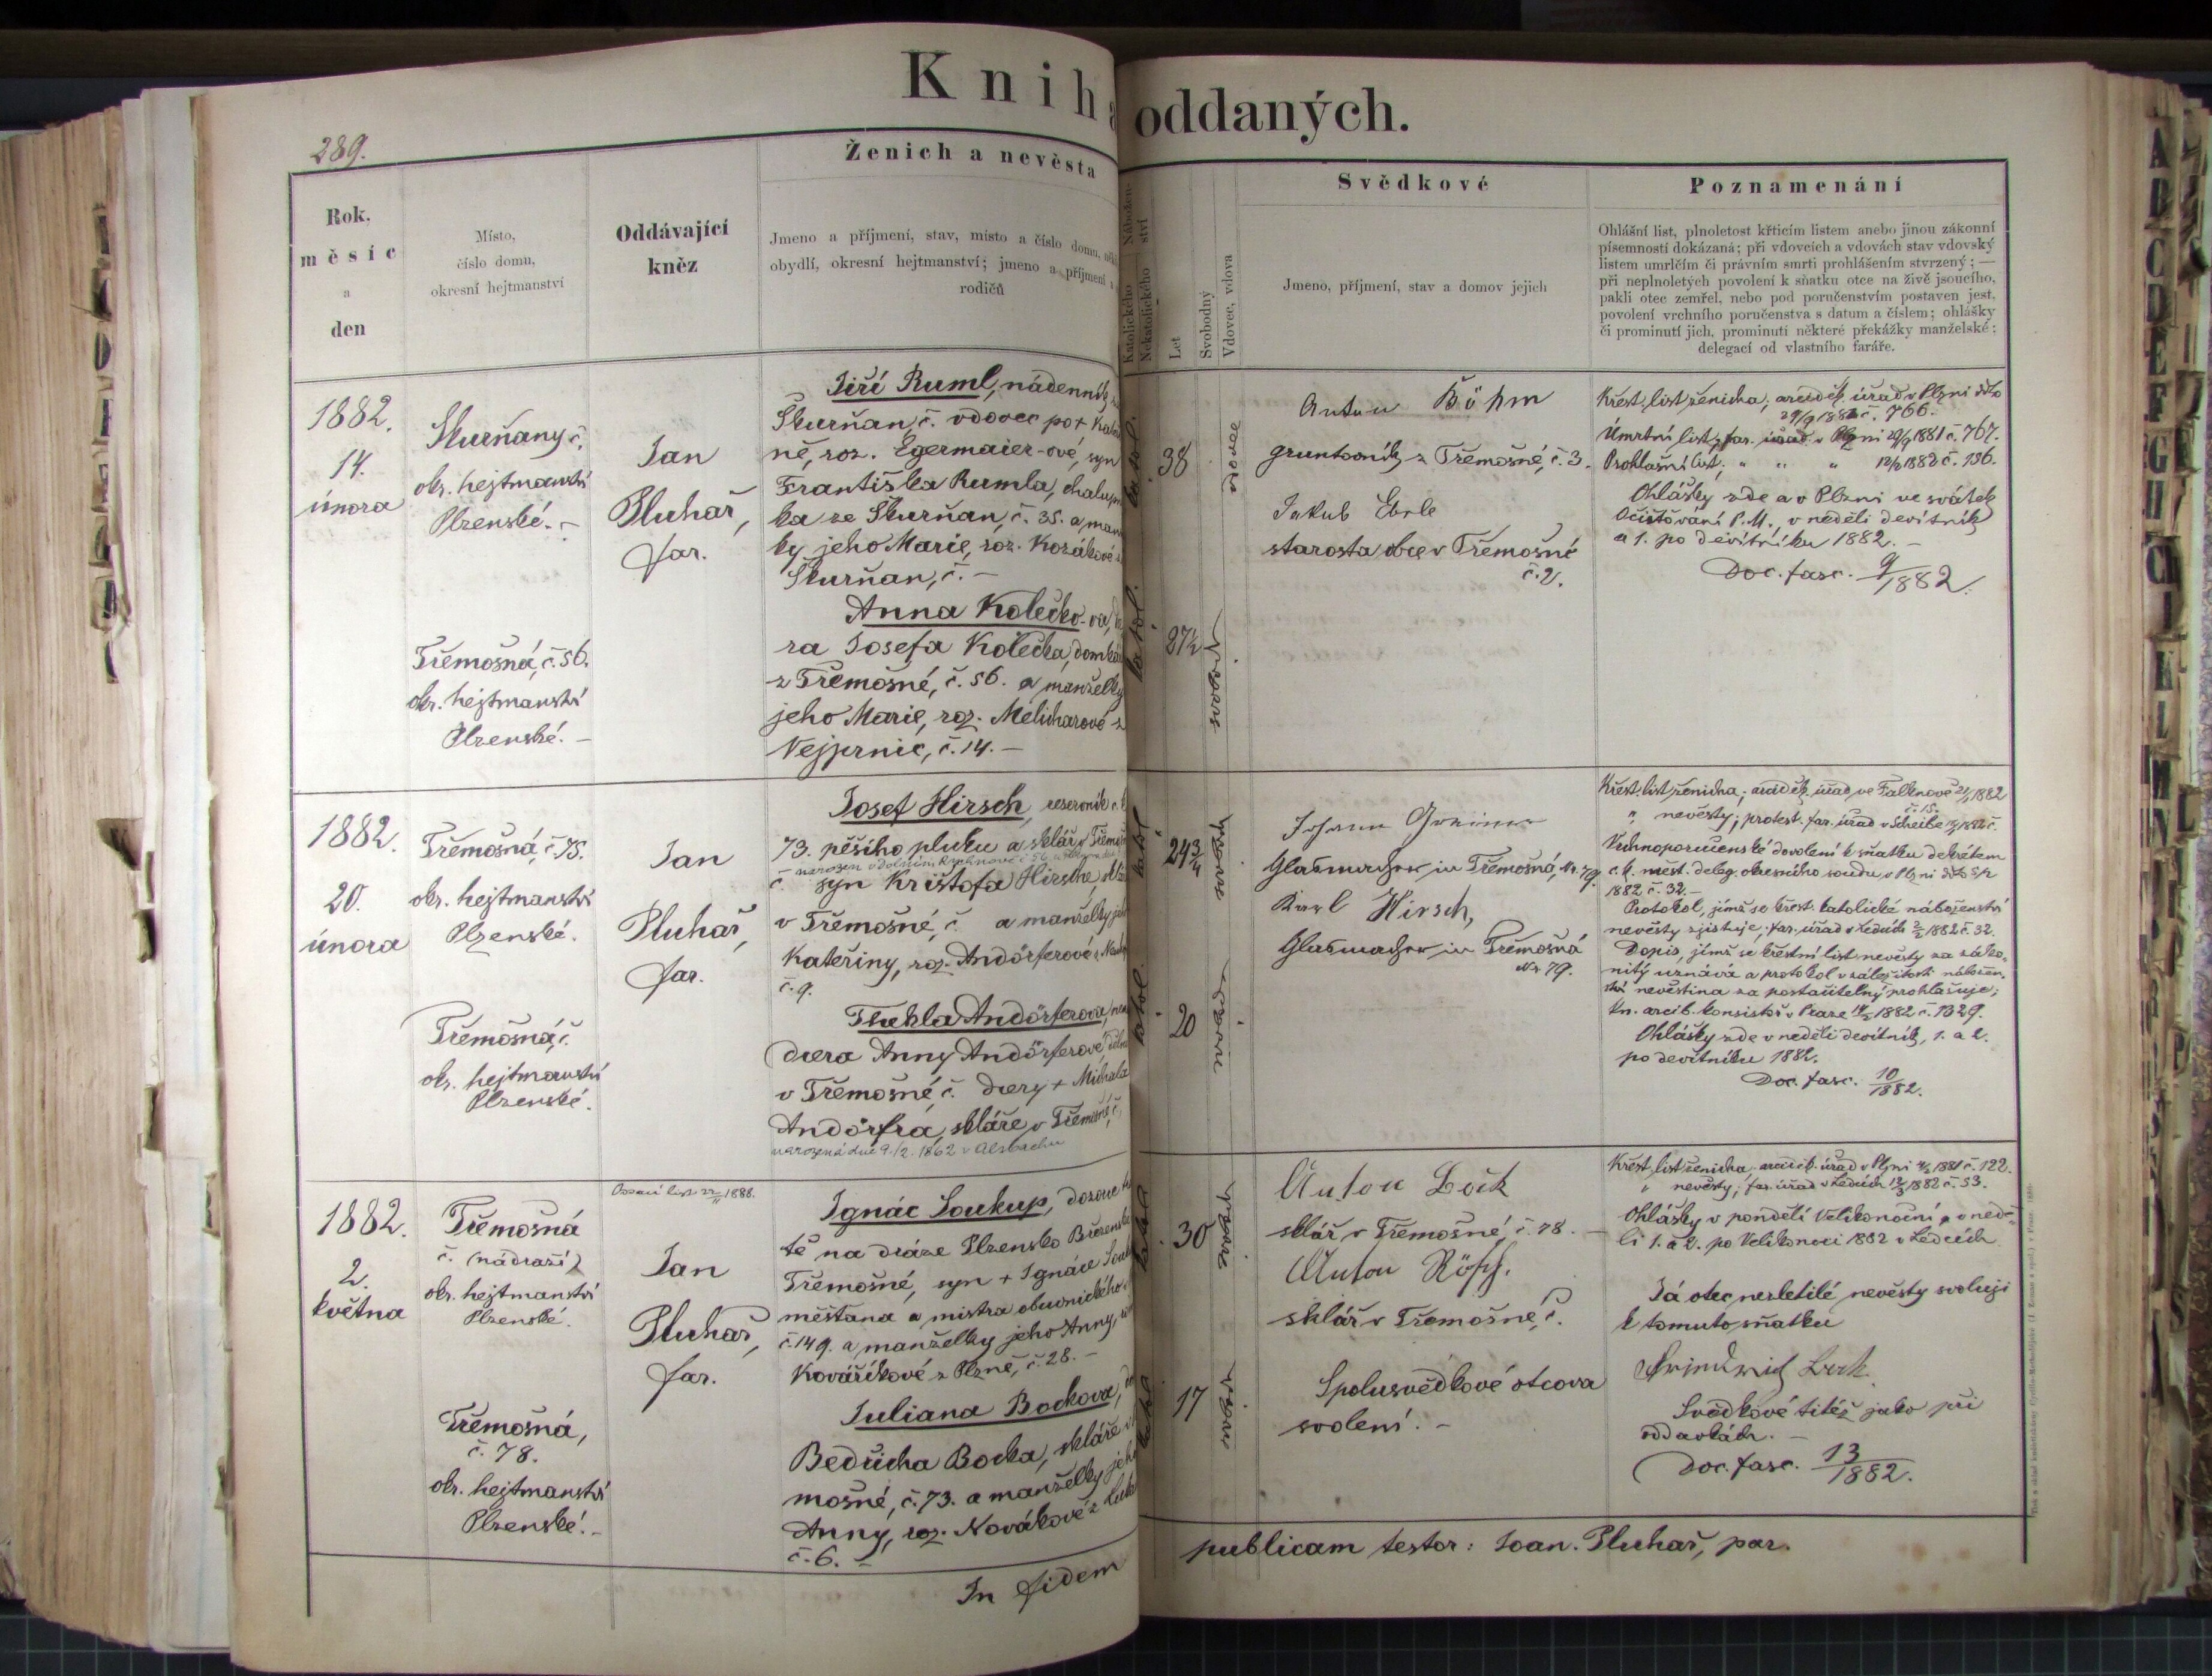 Kniha oddaných.
289.
Ženich a nevěsta
Rok,
měsíc
a
den
Místo,
číslo domu,
okresní hejtmanství
Oddávající
kněz
Jmeno a příjmení, stav, místo a číslo domu,
obydlí, okresní hejtmanství; jmeno a příjmení
rodičů
Nábožen-
ství
Katolického
Nekatolického
Let
Svobodný
Vdovec, vdova
Svědkové
Jmeno, příjmení, stav a domov jejich
Poznamenání
Ohlášní list, plnoletost křticím listem anebo jinou zákonní
písemností dokázaná; při vdovcích a vdovách stav vdovský
listem umrlčím či právním smrti prohlášením stvrzený; —
při neplnoletých povolení k sňatku otce na živě jsoucího,
pakli otec zemřel, nebo pod poručenstvím postaven jest,
povolení vrchního poručenstva s datum a číslem; ohlášky
či prominutí jich, prominutí některé překážky manželské;
delegací od vlastního faráře.
1882.
14.
února
Skurňany č.
okr. hejtmanství
Plzenské. –
Třemošná, č. 56.
okr. hejtmanství
Plzenské. –
Jan
Pluhař,
far.
Jiří Ruml, nádenník
Škurňan, č. vdovec po +
ně, roz. Egermaier-ové, syn
Františka Rumla,
ka ze Škurňan, č. 35. a
ky jeho Marie, roz. Kozákové
Škurňan, č. –
Anna Kolečko-va,
ra Josefa Kolečka,
z Třemošné, č. 56. a manželky
jeho Marie, roz. Melicharové z
Nejprnic, č. 14. –
katol.
katol.
38
27½
vdovec
Anton Böhm
gruntovník z Třemošné, č. 3.
Jakub Eberle
starosta obce v Třemošné
č. 2.
Křest. list ženicha; arciděk. úřad v Plzni
29/9 1881 č. 766.
Úmrtní list; far. úřad v Plzni 29/9 1881 č. 767.
Prohlašní list; " " " 12/2 1882 č. 136.
Ohlášky zde a v Plzni ve svátek
Očišťování P. M., v neděli devítník
a 1. po devítníku 1882. –
Doc. fasc. 9/1882.
1882.
20.
února
Třemošná, č. 75.
okr. hejtmanství
Plzenské.
Třemošná, č.
okr. hejtmanství
Plzenské.
Jan
Pluhař,
far.
Josef Hirsch, reservník c. k.
73. pěšího pluku a sklář v
č. syn Krištofa Hirsche,
v Třemošné, č. a manželky
Kateřiny, roz. Andörferové
č. 9.
Thekla Andörferova,
dcera Anny Andörferové
v Třemošné, č. dcery + Michala
Andörfra, skláře v Třemošné, č.
narozená dne 9./2. 1862 v Alsbachu
katol.
katol.
24¾
20
Johann Greiner
Glasmacher in Třemošná, Nr. 79.
Karl Hirsch,
Glasmacher in Třemošná
Nr. 79.
Křest. list ženicha; arciděk. úřad ve Falknově 21/1 1882
č. 15.
" nevěsty; protest. far. úřad v Scheibe
Vrchnoporučenské dovolení k sňatku dekretem
c. k. měst. deleg. okresního soudu v Plzni
1882 č. 32. –
Protokol, jímž se křest. katolické náboženství
nevěsty zjistuje; far. úřad v Ledcích 1882 č. 32.
Dopis, jímž se křestní list nevěsty za záko-
nitý uznává a protokol v záležitosti nábožen-
ství nevěstina za postačitelný prohlašuje;
kn. arcib. konsistoř v Praze 1882 č. 1329.
Ohlášky zde v neděli devítník, 1. a 2.
po devítníku 1882.
Doc. fasc. 10/1882.
1882.
2.
května
Třemošná
č. (nádraží)
okr. hejtmanství
Plzenské.
Třemošná,
č. 78.
okr. hejtmanství
Plzenské. –
Jan
Pluhař,
far.
Ignác Soukup,
tě na dráze Plzensko
Třemošné, syn + Ignáce
měšťana a mistra obuvnického
č. 149. a manželky jeho Anny,
Kovaříkové z Plzně, č. 28. –
Juliana Bockova,
Bedřicha Bocka, skláře
mošné, č. 73. a manželky jeho
Anny, roz. Novákové z
č. 6. –
30
17
Anton Bock
sklář v Třemošné, č. 78. –
Anton
sklář v Třemošné, č.
Spolusvědkové otcova
svolení. –
Křest. list ženicha; arciděk. úřad v Plzni 1881 č. 122.
" nevěsty; far. úřad v Ledcích 1882 č. 53.
Ohlášky v pondělí Velikonoční, v nedě-
li 1. a 2. po Velikonoci 1882 v Ledcích.
Já otec nezletilé nevěsty svoluji
k tomuto sňatku
Friedrich Bock
Svědkové titéž jako při
oddavkách. –
Doc. fasc. 13/1882.
In fidem publicam testor: Joan. Pluhař, par.